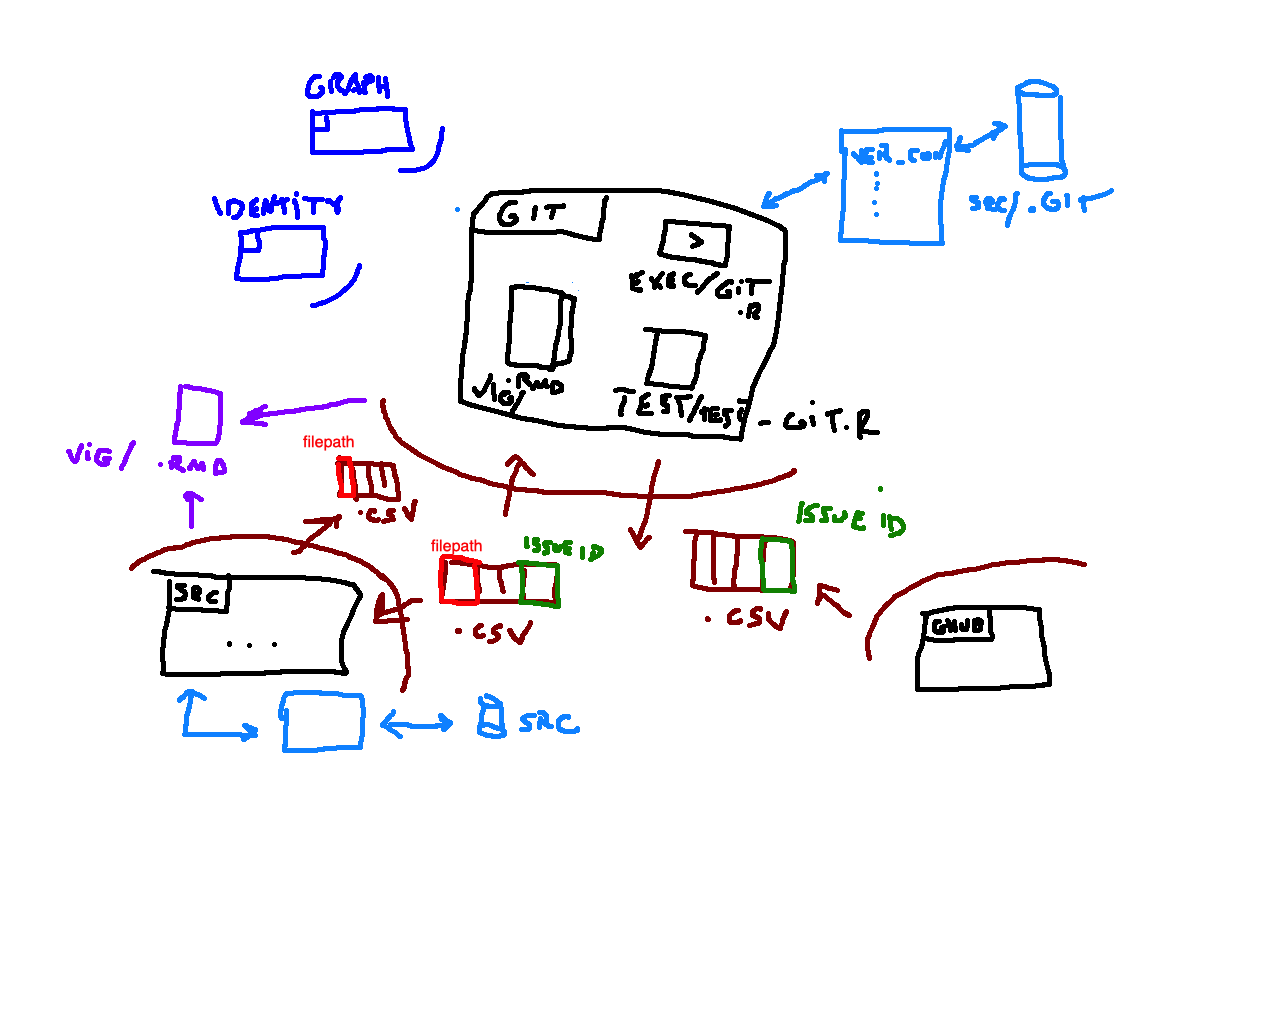 GRAPH
IDENTITY
GIT
>
EXEC/GIT
.R
VIG/.RMD
TEST/TEST-GIT.R
VER_CON
SRC/.GIT
VIG/.RMD
filepath
.CSV
filepath
ISSUE ID
.CSV
ISSUE ID
.CSV
SRC
...
GHUB
SRC